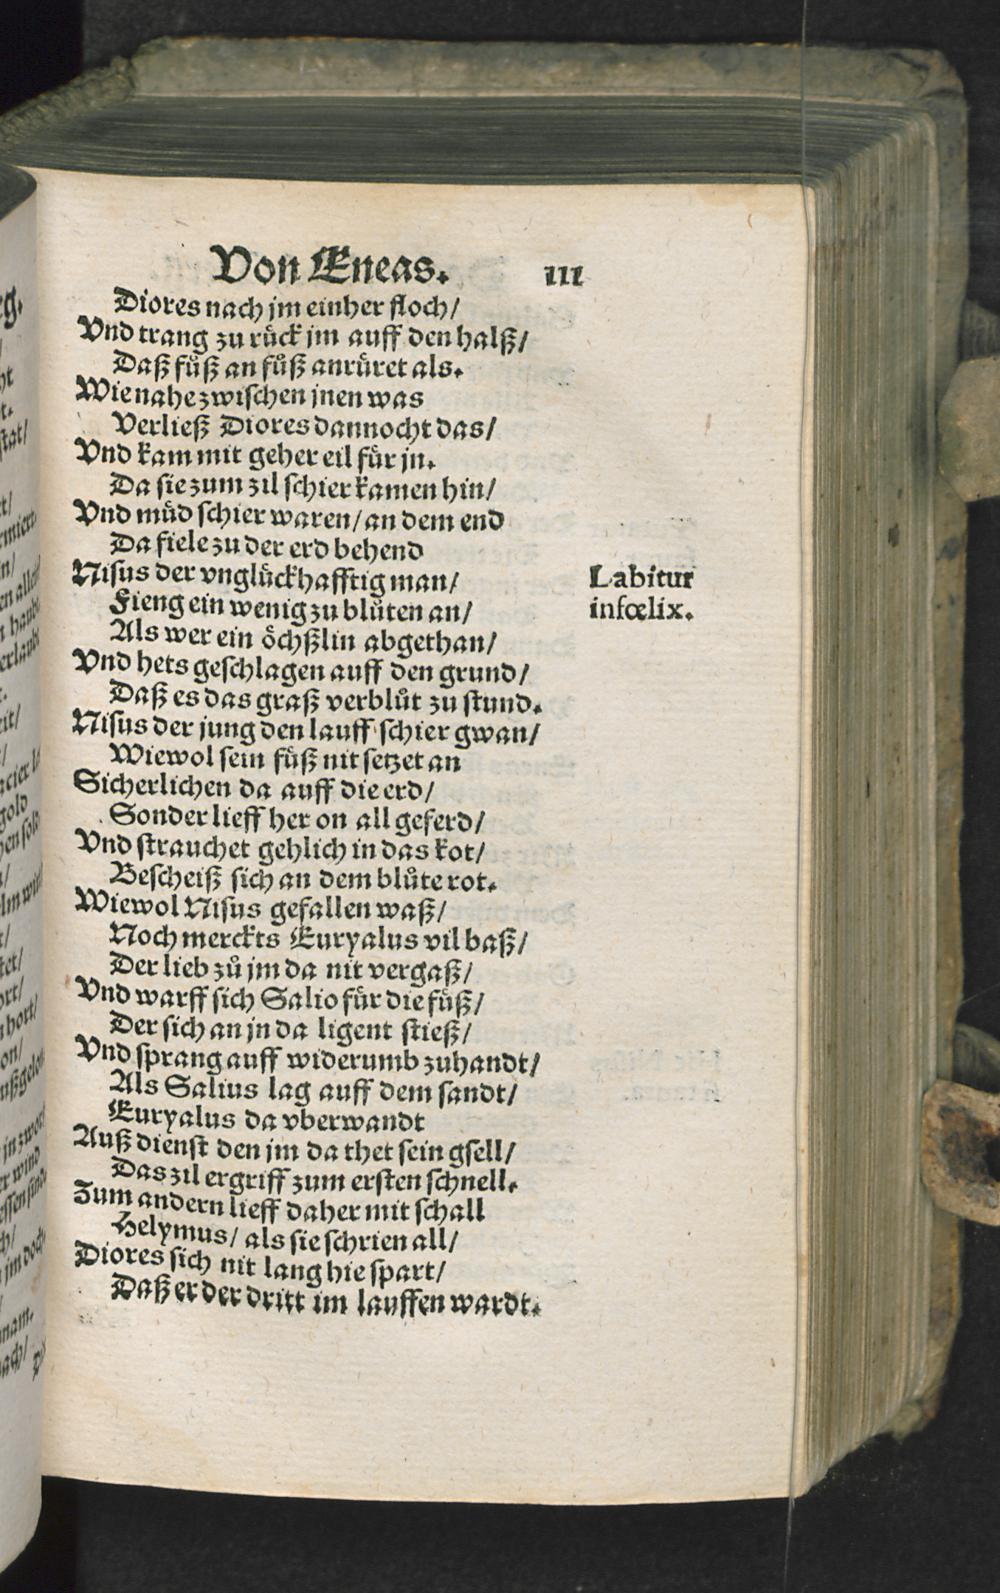 Von Æneas. 111
Diores nach jm einher floch/
Vnd trang zu rück jm auff den halß/
Daß fůß an fůß anrüret als.
Wie nahe zwischen jnen was
Verließ Diores dannocht das/
Vnd kam mit geher eil für jn.
Da sie zum zil schier kamen hin/
Vnd müd schier waren/ an dem end
Da fiele zu der erd behend
Nisus der vnglückhafftig man/
Labitur
Fieng ein wenig zu blüten an/
infœlix.
Als wer ein öchßlin abgethan/
Vnd hets geschlagen auff den grund/
Daß es das graß verblůt zu stund.
Nisus der jung den lauff schier gwan/
Wiewol sein füß nit setzet an
Sicherlichen da auff die erd/
Sonder lieff her on all geferd/
Vnd strauchet gehlich in das kot/
Bescheiß sich an dem blůte rot.
Wiewol Nisus gefallen waß/
Noch merckts Euryalus vil baß/
Der lieb zů jm da nit vergaß/
Vnd warff sich Salio für die füß/
Der sich an jn da ligent stieß/
Vnd sprang auff widerumb zuhandt/
Als Salius lag auff dem sandt/
Euryalus da vberwandt
Auß dienst den jm da thet sein gsell/
Das zil ergriff zum ersten schnell.
Zum andern lieff daher mit schall
Helymus/ als sie schrien all/
Diores sich nit lang hie spart/
Daß er der dritt im lauffen wardt.